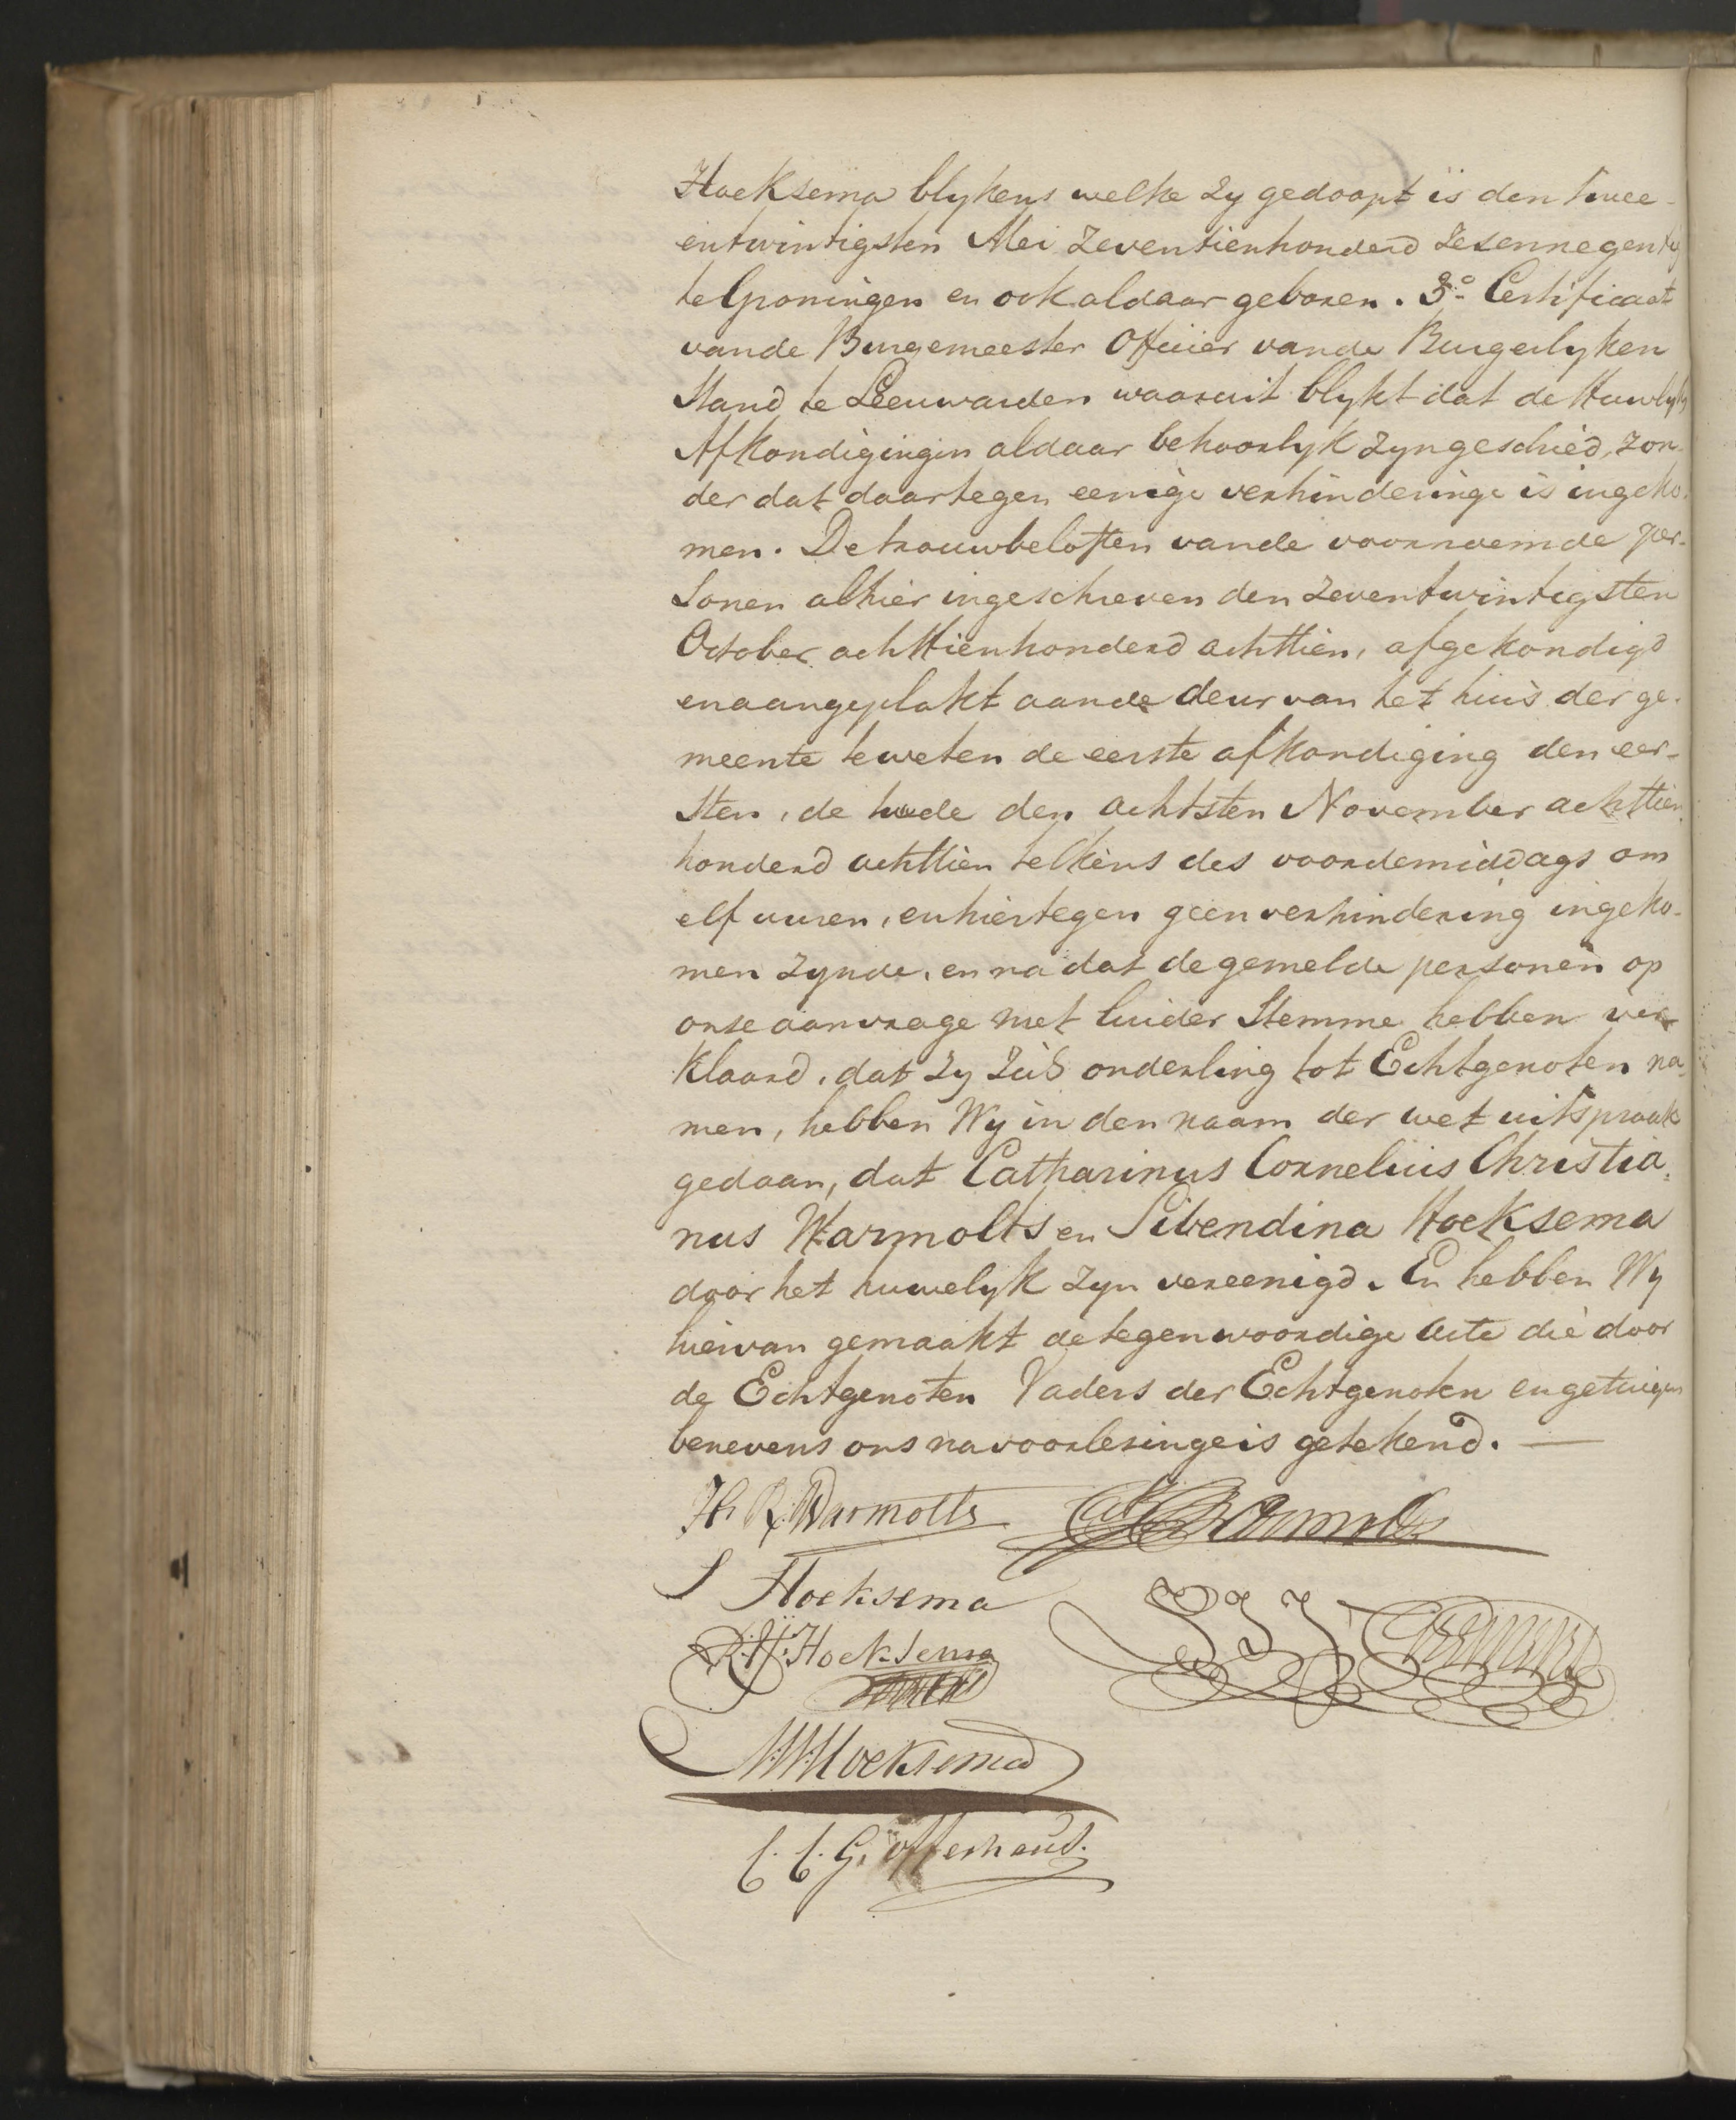 Hoeksema blykens welke zy gedoopt is den twee-
entwintigsten Mei zeventienhonderd zesennegentig
te Groningen en ook aldaar geboren. 3o. Certificaat
vande Burgemeester Officier vande Burgerlyken
Stand te Leeuwarden waaruit blykt dat de Huwlyks
Afkondigingin aldaar behoorlyk zyn geschied, zon-
der dat daartegen eenige verhinderinge is ingeko-
men. De trouwbeloften vande voornoemde per-
sonen alhier ingeschreven den zeventwintigsten
October achttienhonderd achttien, afgekondigd
en aangeplakt aande deur van het huis der ge-
meente te weten de eerste afkondiging den eer-
sten, de twede den achtsten November achttien
honderd achttien telkens des voordemiddags om
elf uuren, en hiertegen geen verhindering ingeko-
men zynde, en na dat de gemelde personen op
onse aanvrage met luider Stemme hebben ver-
klaard, dat zy zich onderling tot Echtgenoten na-
men, hebben Wy in den naam der wet uitspraak
gedaan, dat Catharinus Cornelius Christia-
nus Warmolts en Sibendina Hoeksema
door het huwelyk zyn vereenigd. En hebben Wy
hiervan gemaakt de tegenwoordige Acte die door
de Echtgenoten Vaders der Echtgenoten en getuigen
benevens ons na voorlesinge is getekend. —
H. R. Warmolts Warmolts
S Hoeksema
R. H. Hoeksema
Hoeksema
C. C. G. Offerhaus.